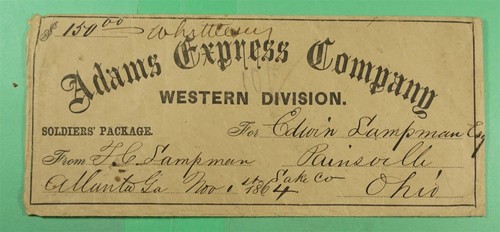 150.00 Whittlesey
Adams Express Company
WESTERN DIVISION.
SOLDIERS' PACKAGE. For Edwin Lampman Esq
From F. C. Lampman Painsville
Atlanta Ga Nov 1st 1864 Lake Co Ohio